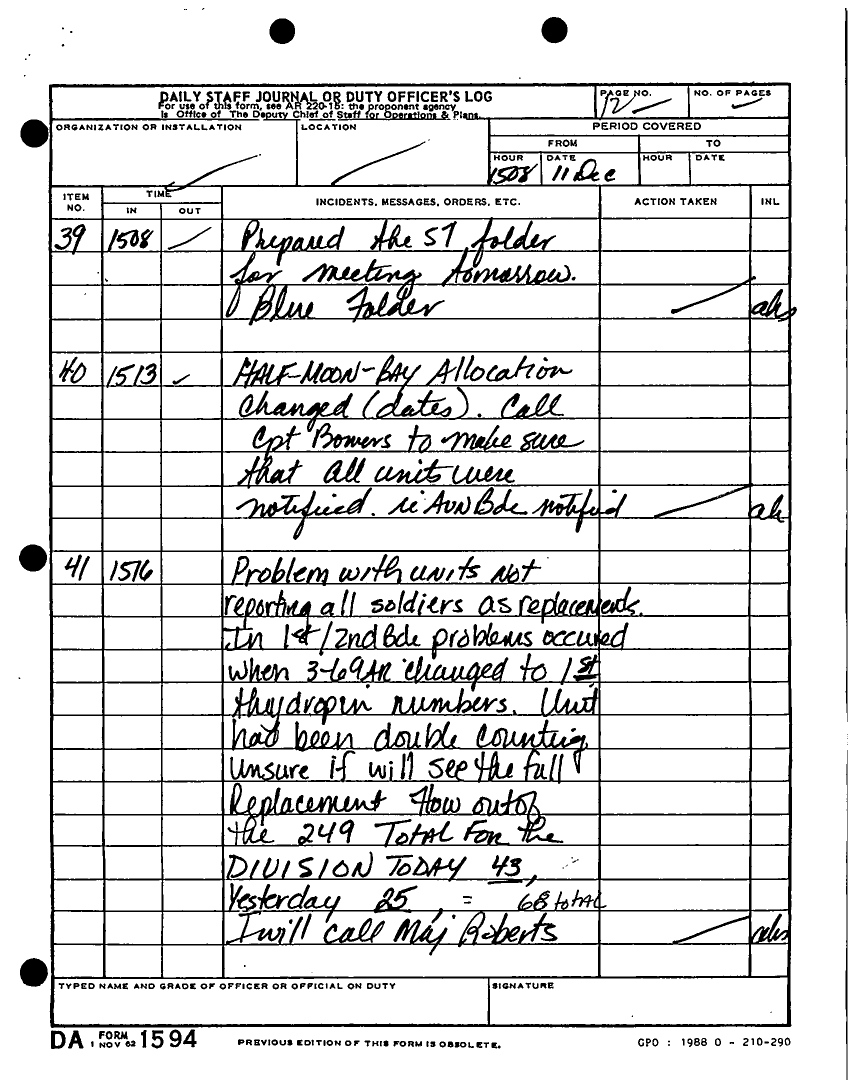 DAILY STAFF JOURNAL OR DUTY OFFICER'S LOG
For use of this form, see AR 220-15: the proponent agency
is Office of The Deputy Chief of Staff for Operations & Plans.
PAGE NO.
12
NO. OF PAGES
ORGANIZATION OR INSTALLATION
LOCATION
PERIOD COVERED
FROM
TO
HOUR
1508
DATE
11 Dec
HOUR
DATE
ITEM NO.
TIME
IN
OUT
INCIDENTS, MESSAGES, ORDERS, ETC.
ACTION TAKEN
INL
39 1508 Prepared the ST folder
for meeting tomorrow.
Blue Folder ahs
40 1513 HALF-MOON-BAY Allocation
Changed (dates). Call
Cpt Bowers to make sure
that all units were
notified. Avn Bde notified
41 1516 Problem with units not
reporting all soldiers as replacements.
In 1st/2nd Bde problems occured
when 3-69AR changed to 1st
they drop in numbers. Unit
had been double counting
Unsure if will see the full
Replacement flow out of
the 249 TOTAL FOR the
DIVISION TODAY 43,
Yesterday 25, = 68 total
I will call Maj Roberts ahs
TYPED NAME AND GRADE OF OFFICER OR OFFICIAL ON DUTY
SIGNATURE
DA FORM 1 NOV 62 1594
PREVIOUS EDITION OF THIS FORM IS OBSOLETE.
GPO : 1988 O - 210-290